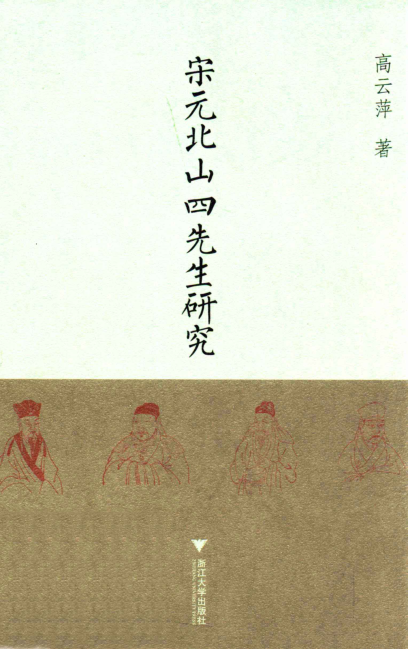 高云萍 著
宋元北山四先生研究
浙江大学出版社
ZHEJIANG UNIVERSITY PRESS